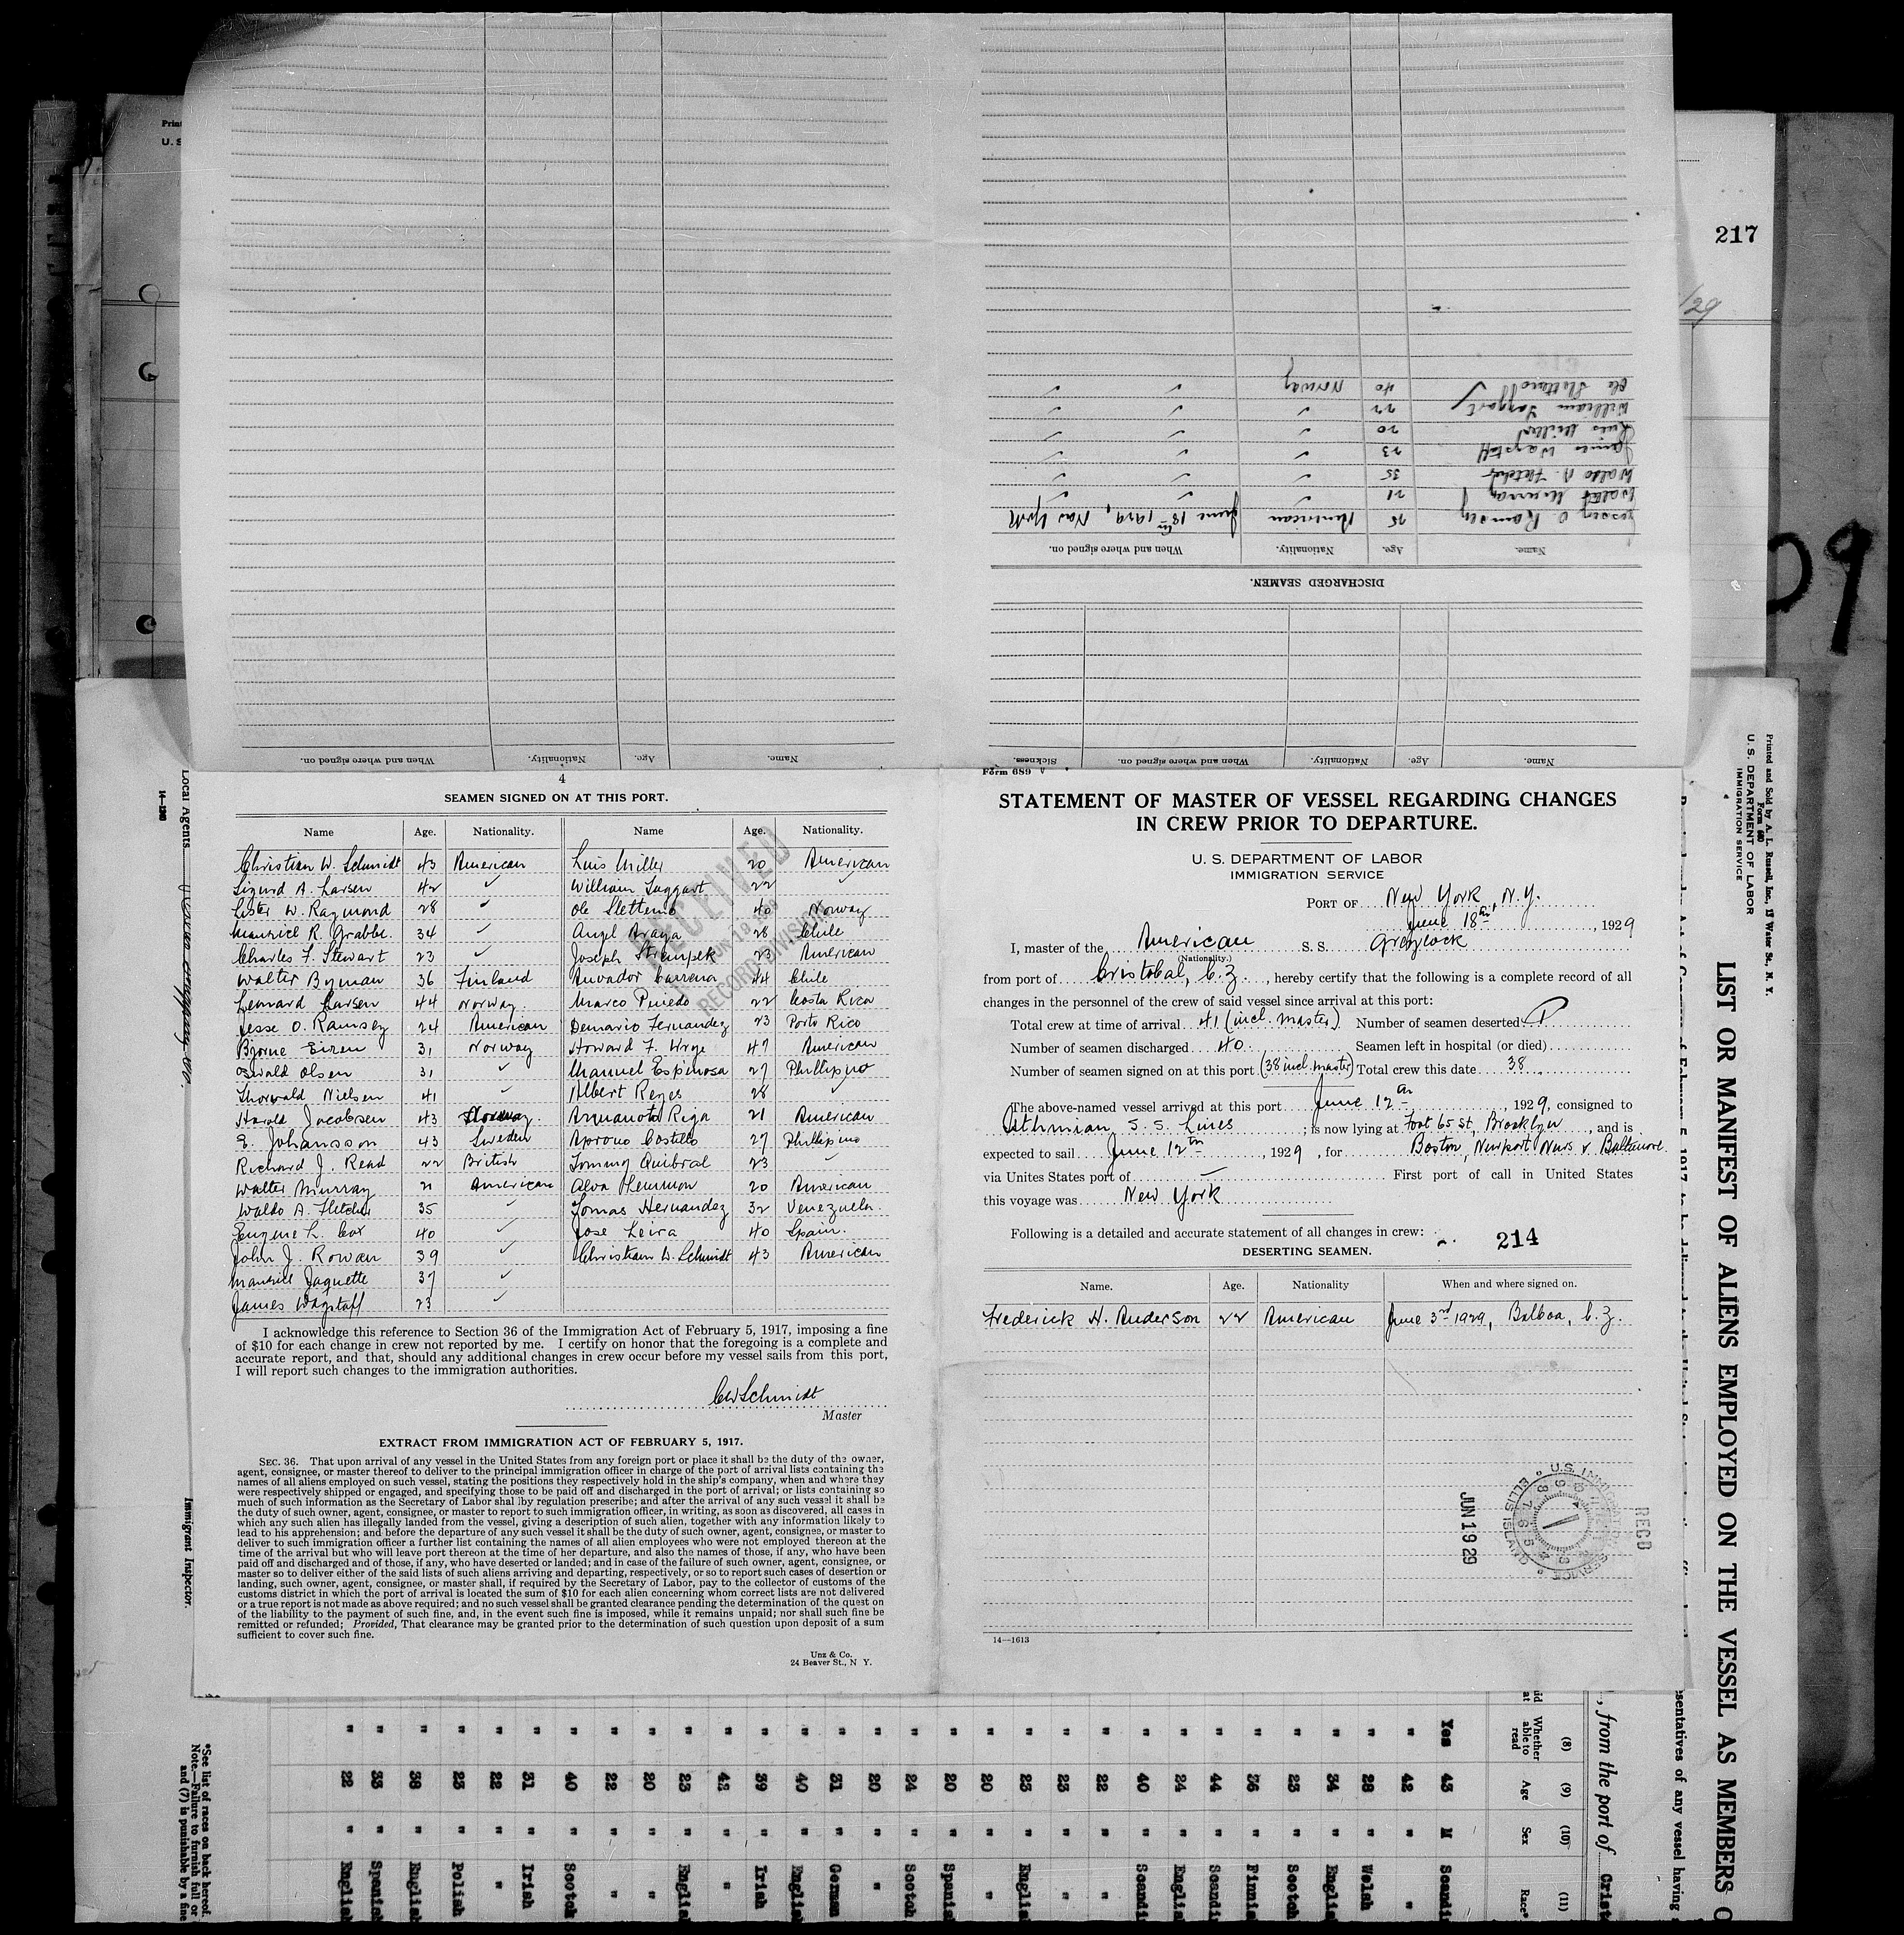 217
/29
09
Ole Slettemo 40 Norway ✓ ✓
William Taggart 22 ✓ ✓ ✓
Luis Miller 20 ✓ ✓ ✓
James Wagstaff 23 ✓ ✓ ✓
Waldo A. Fletcher 35 ✓ ✓ ✓
Walter Murray 21 ✓ ✓ ✓
O Ramsey 25 American June 18th 1929, New York
Name. Age. Nationality. When and where signed on.
DISCHARGED SEAMEN.
Name. Age. Nationality. When and where signed on. Sickness.
Name. Age. Nationality. When and where signed on.
4
SEAMEN SIGNED ON AT THIS PORT.
Name Age. Nationality. Name Age. Nationality.
Christian W. Schmidt 43 American Luis Miller 20 American
Sigurd A. Larsen 42 ✓ William Taggart 22 ✓
Lester W. Raymond 28 ✓ Ole Slettemo 40 Norway
Maurice R. Grabbe. 34 ✓ Angel Araya 28 Chile
Charles F. Stewart 23 ✓ Joseph Strempek 23 American
Walter Byman 36 Finland Anvador Carrera 44 Chile
Lennard Larsen 44 Norway. Marco Pinedo 22 Costa Rica
Jesse O. Ramsey 24 American Demario Fernandez 23 Porto Rico
Bjorne Eizen 31 Norway Howard F. Wrye 47 American
Oswald Olsen 31 ✓ Manuel Espinosa 27 Phillipino
Thorwald Nielsen 41 ✓ Albert Reyes 28 ✓
Harold Jacobsen 43 Norway. Riga 21 American
E. Johansson 43 Sweden Costillo 27 Phillipino
Richard J. Read 22 British Tommy Quibral 23 ✓
Walter Murray 21 American Alva Lemmon 20 American
Waldo A. Fletcher 35 ✓ Tomas Hernandez 32 Venezuela.
Eugene L. Cox 40 ✓ Jose Leira 40 Spain.
John J. Rowan 39 ✓ Christian W. Schmidt 43 American
Maurice Jaquette 37 ✓
James Wagstaff 23 ✓
RECEIVED
JUN 19 1929
RECORD DIVISION
I acknowledge this reference to Section 36 of the Immigration Act of February 5, 1917, imposing a fine
of $10 for each change in crew not reported by me. I certify on honor that the foregoing is a complete and
accurate report, and that, should any additional changes in crew occur before my vessel sails from this port,
I will report such changes to the immigration authorities.
CW Schmidt
Master
EXTRACT FROM IMMIGRATION ACT OF FEBRUARY 5, 1917.
SEC. 36. That upon arrival of any vessel in the United States from any foreign port or place it shall be the duty of the owner,
agent, consignee, or master thereof to deliver to the principal immigration officer in charge of the port of arrival lists containing the
names of all aliens employed on such vessel, stating the positions they respectively hold in the ship's company, when and where they
were respectively shipped or engaged, and specifying those to be paid off and discharged in the port of arrival; or lists containing so
much of such information as the Secretary of Labor shal lby regulation prescribe; and after the arrival of any such vessel it shall be
the duty of such owner, agent, consignee, or master to report to such immigration officer, in writing, as soon as discovered, all cases in
which any such alien has illegally landed from the vessel, giving a description of such alien, together with any information likely to
lead to his apprehension; and before the departure of any such vessel it shall be the duty of such owner, agent, consignee, or master to
deliver to such immigration officer a further list containing the names of all alien employees who were not employed thereon at the
time of the arrival but who will leave port thereon at the time of her departure, and also the names of those, if any, who have been
paid off and discharged and of those, if any, who have deserted or landed; and in case of the failure of such owner, agent, consignee, or
master so to deliver either of the said lists of such aliens arriving and departing, respectively, or so to report such cases of desertion or
landing, such owner, agent, consignee, or master shall, if required by the Secretary of Labor, pay to the collector of customs of the
customs district in which the port of arrival is located the sum of $10 for each alien concerning whom correct lists are not delivered
or a true report is not made as above required; and no such vessel shall be granted clearance pending the determination of the quest on
of the liability to the payment of such fine, and, in the event such fine is imposed, while it remains unpaid; nor shall such fine be
remitted or refunded; Provided, That clearance may be granted prior to the determination of such question upon deposit of a sum
sufficient to cover such fine.
Unz & Co.
24 Beaver St., N Y.
Form 689
STATEMENT OF MASTER OF VESSEL REGARDING CHANGES
IN CREW PRIOR TO DEPARTURE.
U. S. DEPARTMENT OF LABOR
IMMIGRATION SERVICE
PORT OF New York, N.Y.
June 18th, 1929
I, master of the American S. S. Greylock
(Nationality.)
from port of Cristobal, C.Z., hereby certify that the following is a complete record of all
changes in the personnel of the crew of said vessel since arrival at this port:
Total crew at time of arrival 41 (incl. master) Number of seamen deserted 1
Number of seamen discharged 40. Seamen left in hospital (or died)
Number of seamen signed on at this port (38 incl master) Total crew this date 38.
The above-named vessel arrived at this port June 12th, 1929, consigned to
Isthmian S. S. Lines ; is now lying at Foot 65 St, Brooklyn, and is
expected to sail June 12th, 1929, for Boston, Newport News & Baltimore.
via Unites States port of — First port of call in United States
this voyage was New York
Following is a detailed and accurate statement of all changes in crew: 214
DESERTING SEAMEN.
Name. Age. Nationality When and where signed on.
Frederick H. Anderson 22 American June 3rd 1929, Balboa, C.Z.
REC'D
U.S. IMMIGRATION SERVICE ELLIS ISLAND
JUN 19 29
14—1613
Local Agents
14—1240
Immigrant Inspector.
*See list of races on back hereof.
Note.—Failure to furnish full or
and (7) is punishable by a fine
Printed and Sold by A. L. Russell, Inc., 13 Water St., N. Y.
Form 680
U. S. DEPARTMENT OF LABOR
IMMIGRATION SERVICE
LIST OR MANIFEST OF ALIENS EMPLOYED ON THE VESSEL AS MEMBERS O
sentatives of any vessel having
, from the port of Crist
(8) (9) (10) (11)
Whether able to read Age Sex Race*
Yes 43 M Scandi
" 42 " "
" 28 " Welsh
" 34 " Englis
" 23 " Scotch
" 36 " Finnis
" 44 " Scandi
" 24 " Englis
" 40 " Scandi
" 22 " "
" 23 " "
" 23 " Englis
" 20 " "
" 20 " Spanis
" 24 " Scotch
" 20 " "
" 31 " German
" 40 " Englis
" 39 " Irish
" 43 " "
" 23 " Englis
" 20 " "
" 22 " "
" 40 " Scotch
" 31 " Irish
" 22 " "
" 23 " Polish
" 38 " English
" 33 " Spanish
" 22 " English